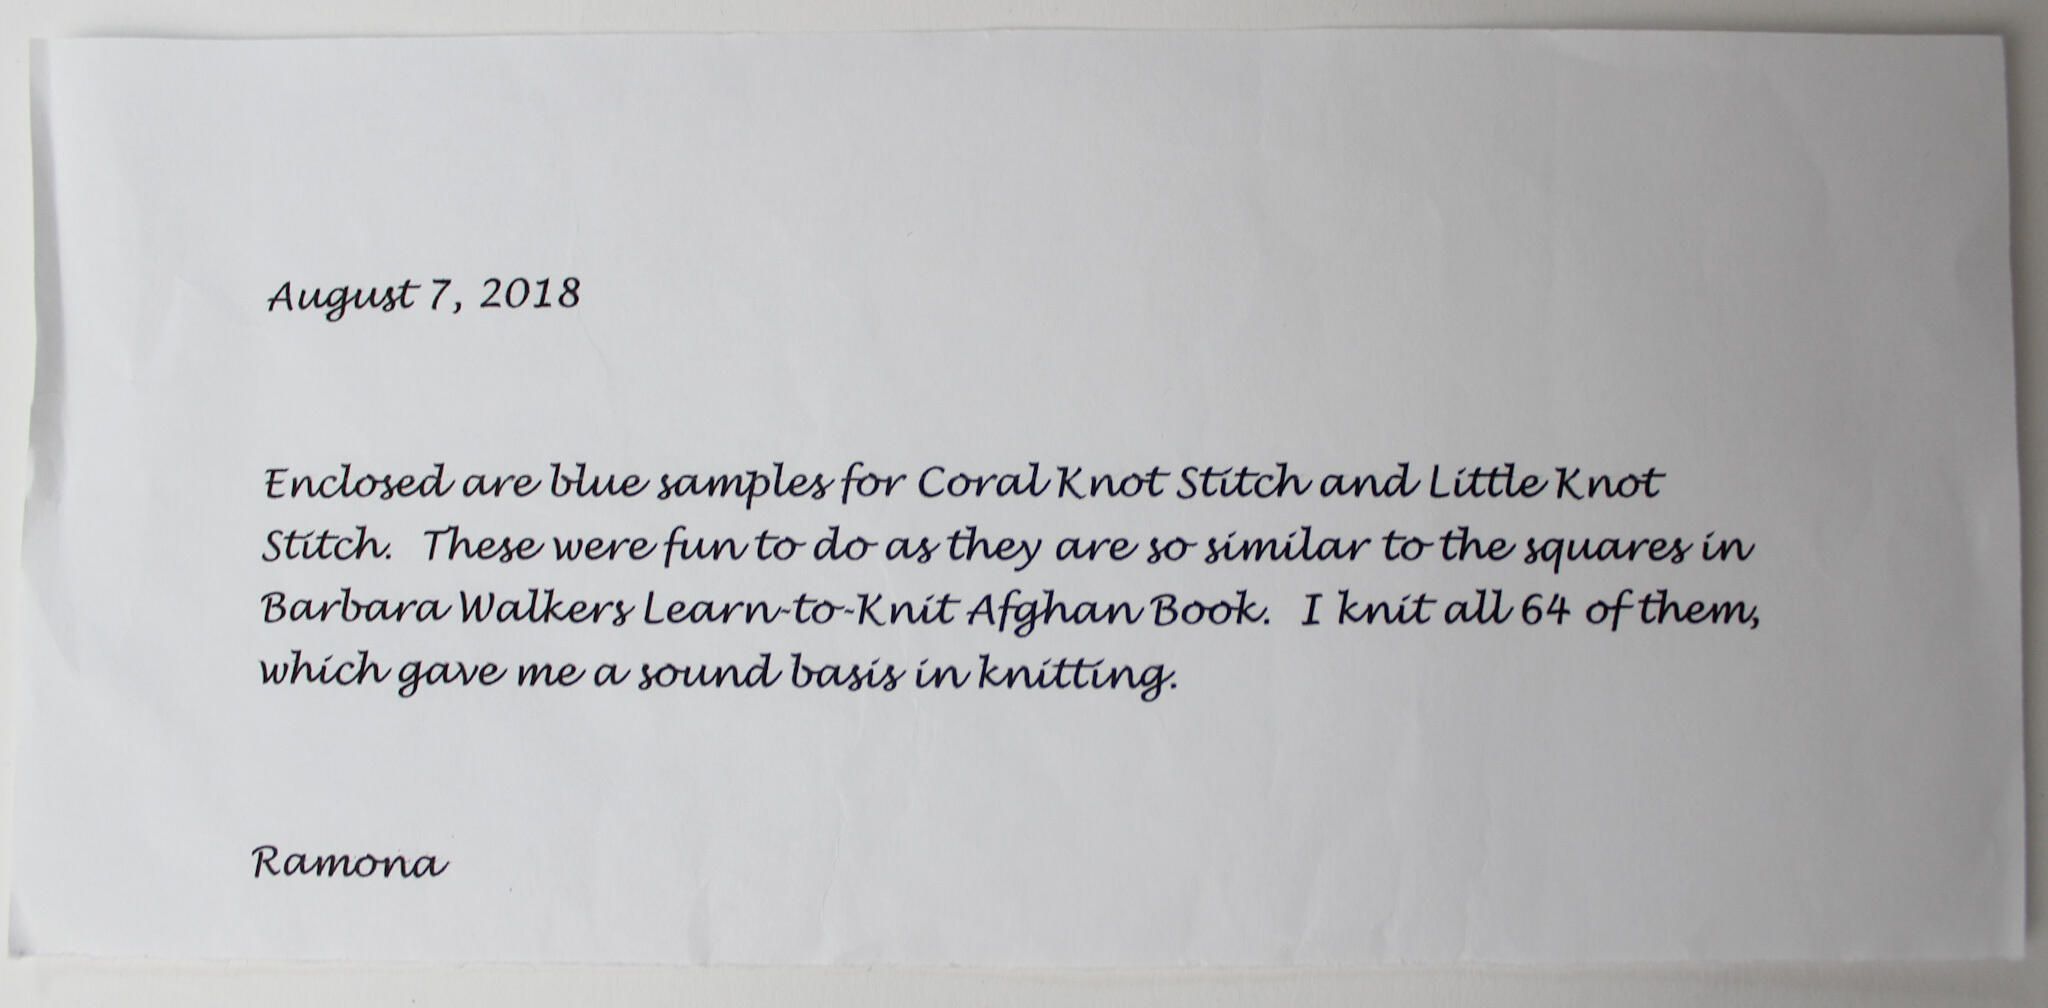 August 7, 2018
Enclosed are blue samples for Coral Knot Stitch and Little Knot
Stitch. These were fun to do as they are so similar to the squares in
Barbara Walkers Learn-to-Knit Afghan Book. I knit all 64 of them,
which gave me a sound basis in knitting.
Ramona